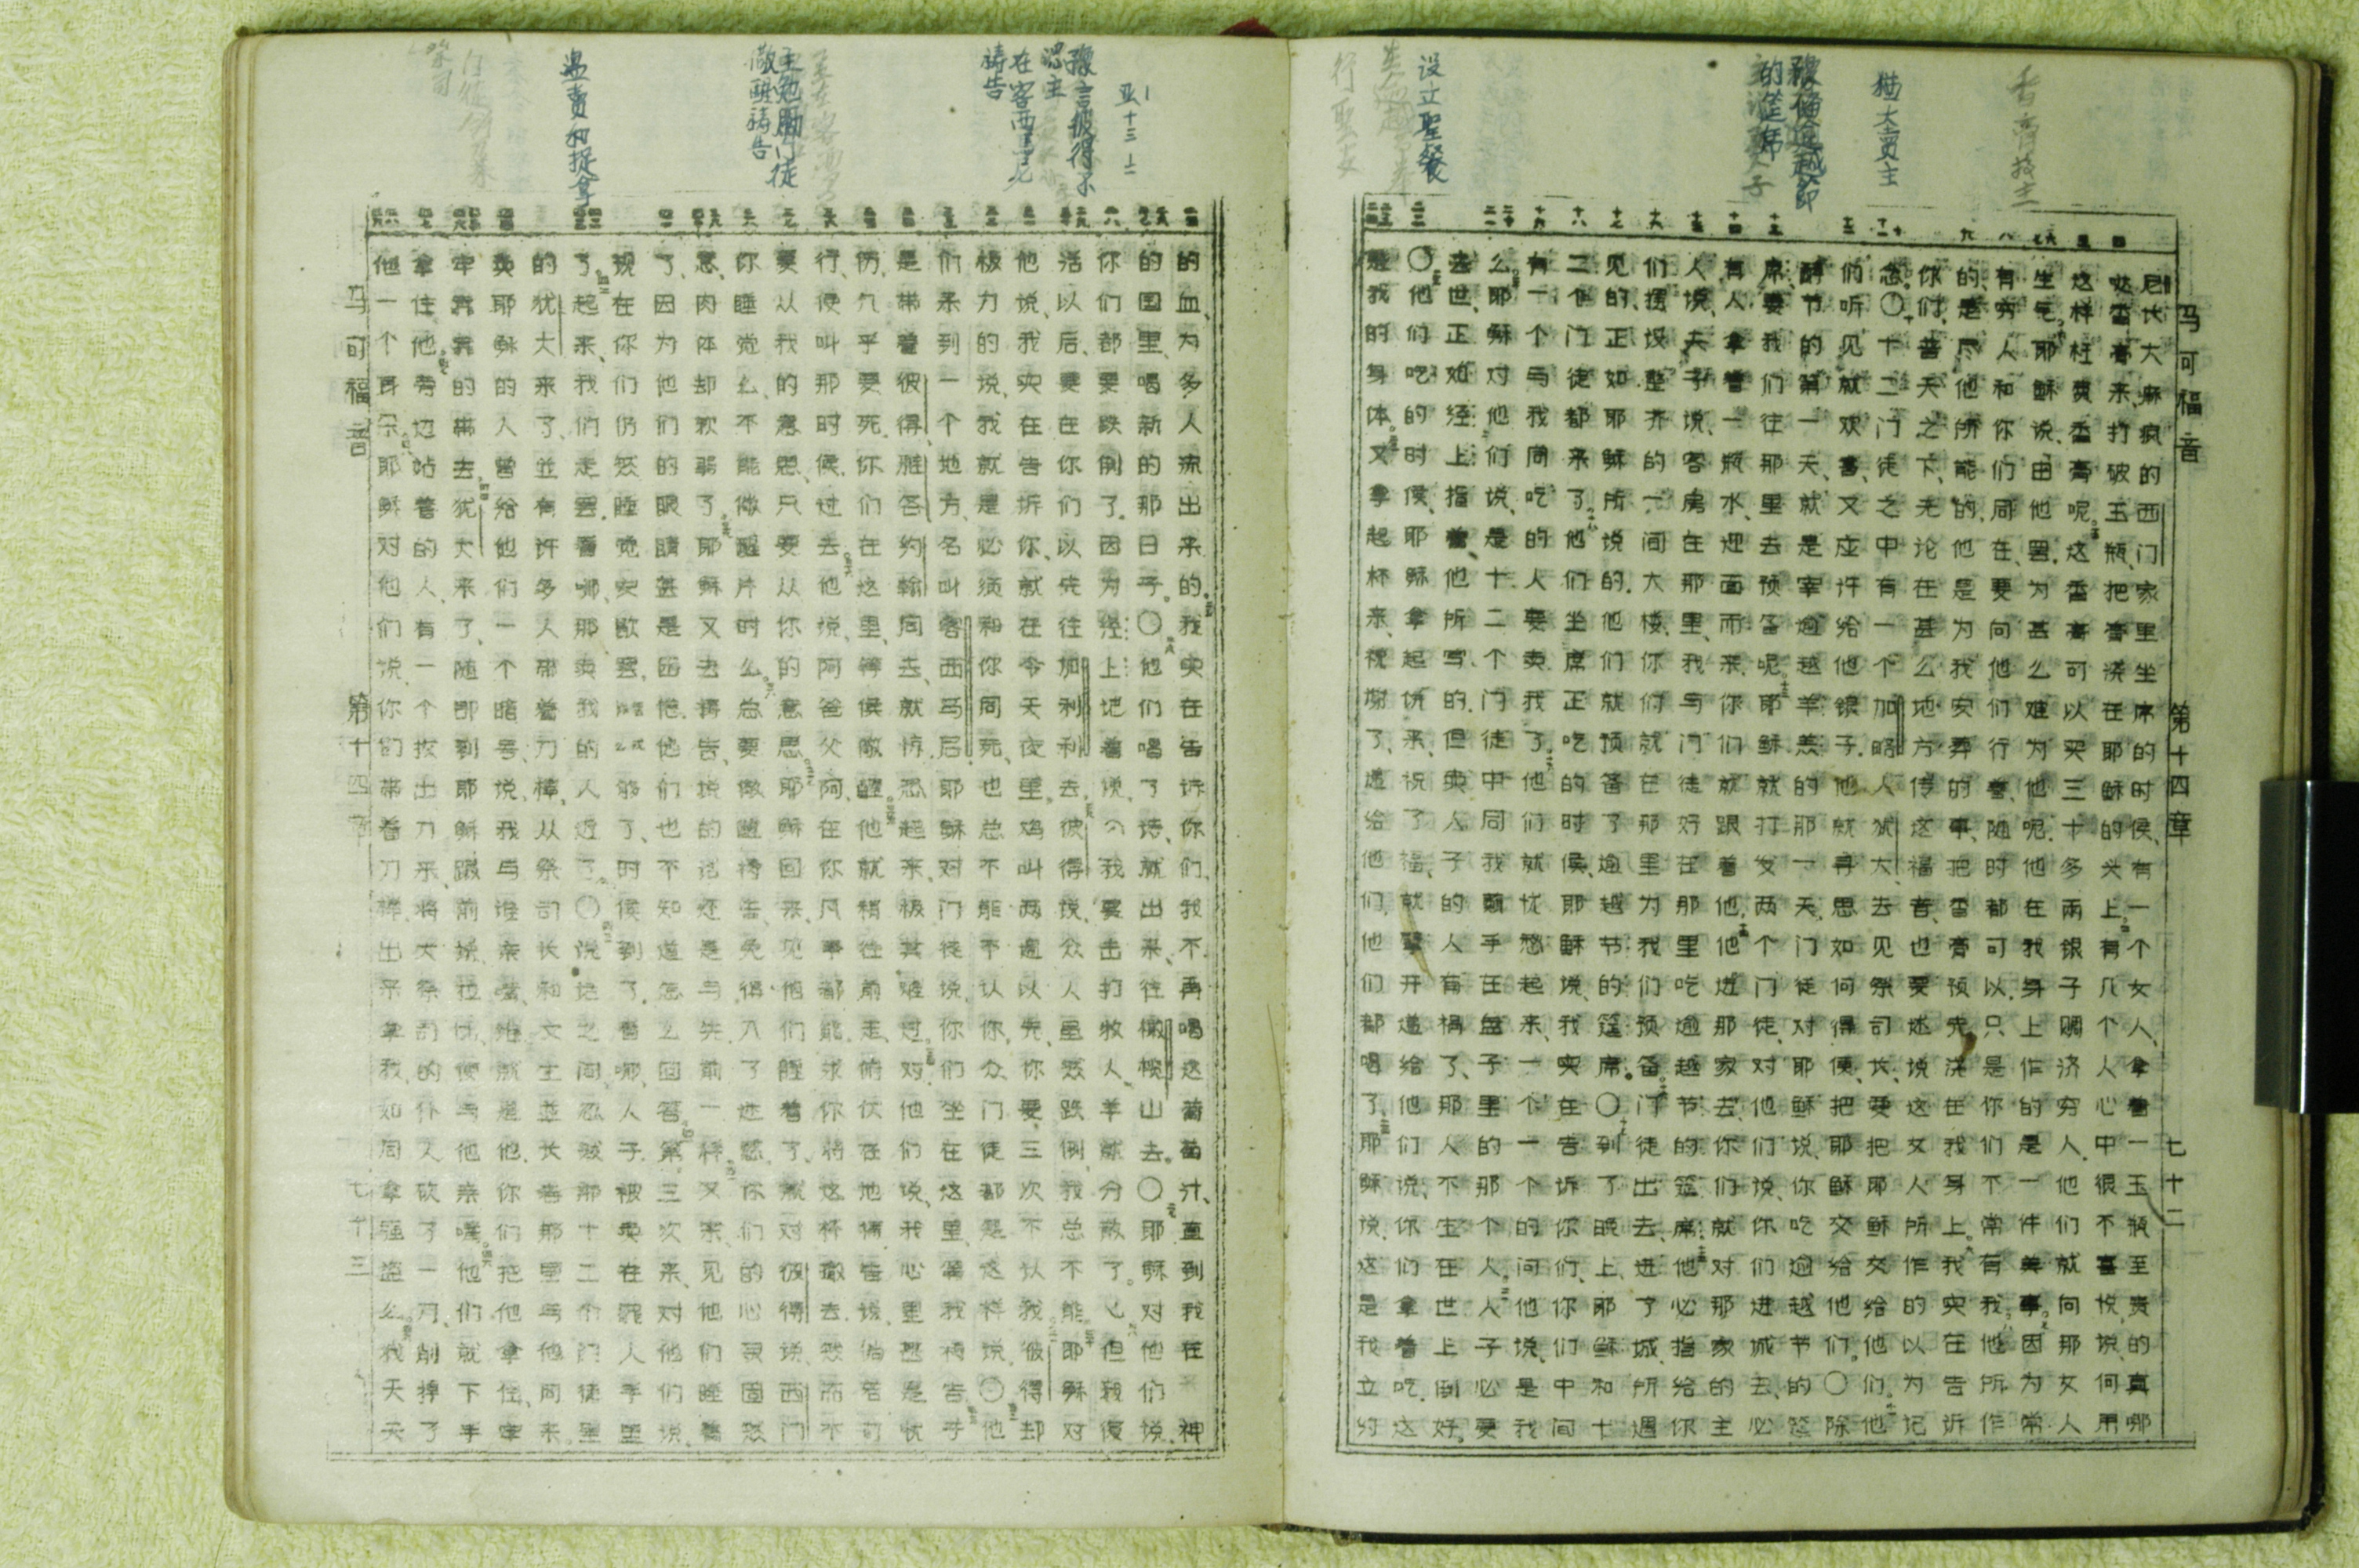 香膏抹主
犹大卖主
预备逾越节的筵席
设立圣餐
马可福音 第十四章 七十二
尼长大麻疯的西门家里坐席的时候、有一个女人、拿着一玉瓶至贵的真哪
哒香膏来、打破玉瓶、把膏浇在耶稣的头上。有几个人心中很不喜悦、说、何用
这样枉费香膏呢。这香膏可以买三十多两银子賙济穷人。他们就向那女人
生气。耶稣说、由他罢、为甚么难为他呢。他在我身上作的是一件美事。因为常
有穷人和你们同在、要向他们行善、随时都可以、只是你们不常有我。他所作
的、是尽他所能的、他是为我安葬的事、把香膏预先浇在我身上。我实在告诉
你们、普天之下、无论在甚么地方传这福音、也要述说这女人所作的以为记
念。〇十二门徒之中有一个加略人犹大、去见祭司长、要把耶稣交给他们。他
们听见就欢喜、又应许给他银子。他就寻思如何得便、把耶稣交给他们。〇除
酵节的第一天、就是宰逾越羊羔的那一天、门徒对耶稣说、你吃逾越节的筵
席、要我们往那里去预备呢。耶稣就打发两个门徒、对他们说、你们进城去、必
有人拿着一瓶水、迎面而来、你们就跟着他。他进那家去、你们就对那家的主
人说、夫子说、客房在那里、我与门徒好在那里吃逾越节的筵席。他必指给你
们摆设整齐的一间大楼、你们就在那里为我们预备。门徒出去、进了城、所遇
见的、正如耶稣所说的。他们就预备了逾越节的筵席。〇到了晚上、耶稣和十
二个门徒都来了。他们坐席正吃的时候、耶稣说、我实在告诉你们、你们中间
有一个与我同吃的人要卖我了。他们就忧愁起来、一个一个的问他说、是我
么。耶稣对他们说、是十二个门徒中同我蘸手在盘子里的那个人。人子必要
去世、正如经上指着他所写的、但卖人子的人有祸了、那人不生在世上倒好。
〇他们吃的时候、耶稣拿起饼来、祝了福、就擘开递给他们说、你们拿着吃、这
是我的身体。又拿起杯来、祝谢了、递给他们、他们都喝了。耶稣说、这是我立约
预言彼得不认主
在客西马尼祷告
主勉励门徒儆醒祷告
出卖和捉拿
的血、为多人流出来的。我实在告诉你们、我不再喝这葡萄汁、直到我在 神
的国里、喝新的那日子。〇他们唱了诗、就出来、往橄榄山去。〇耶稣对他们说、
你们都要跌倒了、因为经上记着说、我要击打牧人、羊就分散了。但我复
活以后、要在你们以先往加利利去。彼得说、众人虽然跌倒、我总不能。耶稣对
他说、我实在告诉你、就在今天夜里、鸡叫两遍以先、你要三次不认我。彼得却
极力的说、我就是必须和你同死、也总不能不认你。众门徒都是这样说。〇他
们来到一个地方、名叫客西马尼。耶稣对门徒说、你们坐在这里、等我祷告。于
是带着彼得、雅各、约翰同去、就惊恐起来、极其难过。对他们说、我心里甚是忧
伤、几乎要死、你们在这里等候儆醒。他就稍往前走、俯伏在地祷告说、倘若可
行、便叫那时候过去。他说、阿爸父阿、在你凡事都能、求你将这杯撤去、然而不
要从我的意思、只要从你的意思。耶稣回来、见他们睡着了、就对彼得说、西门
你睡觉么、不能儆醒片时么。总要儆醒祷告、免得入了迷惑、你们的心灵固然
愿意、肉体却软弱了。耶稣又去祷告、说的话还是与先前一样。又来见他们睡着
了、因为他们的眼睛甚是困倦、他们也不知道怎么回答。第三次来、对他们说、
现在你们仍然睡觉安歇罢、够了、时候到了、看哪、人子被卖在罪人手里
了。起来、我们走罢、看哪、那卖我的人近了。〇说话之间、忽然那十二个门徒里
的犹大来了、並有许多人带着刀棒、从祭司长和文士並长老那里与他同来。
卖耶稣的人曾给他们一个暗号说、我与谁亲嘴、谁就是他、你们把他拿住、牢
牢靠靠的带去。犹大来了、随即到耶稣跟前说、拉比、便与他亲嘴。他们就下手
拿住他。旁边站着的人、有一个拔出刀来、将大祭司的仆人砍了一刀、削掉了
他一个耳朵。耶稣对他们说、你们带着刀棒出来拿我、如同拿强盗么。我天天
马可福音 第十四章 七十三